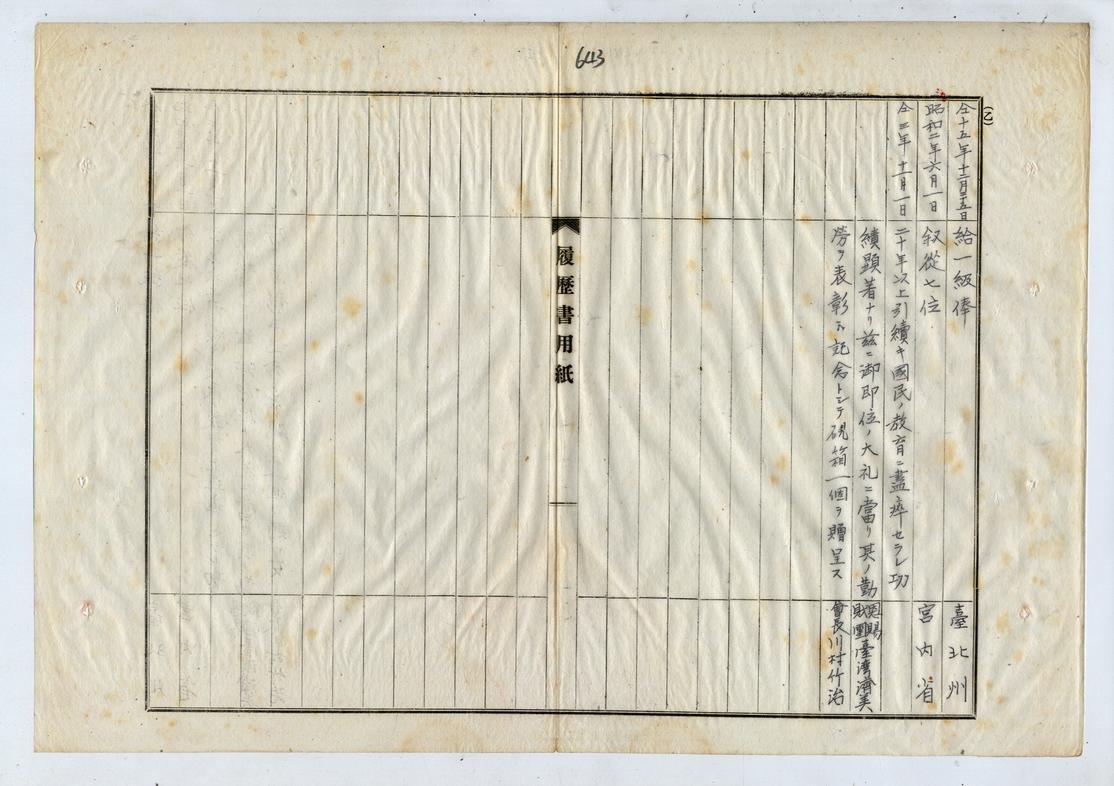 643
(乙)
仝十五年十二月二十五日 給一級俸 臺北州
昭和二年六月一日 叙從七位 宮内省
仝三年十一月一日 二十年以上引續キ國民ノ教育ニ盡瘁セラレ功
績顯著ナリ茲ニ御即位ノ大礼ニ當リ其ノ勤 恩賜財團臺湾濟美
勞ヲ表彰ス記念トシテ硯箱一個ヲ贈呈ス 會長川村竹治
履歷書用紙